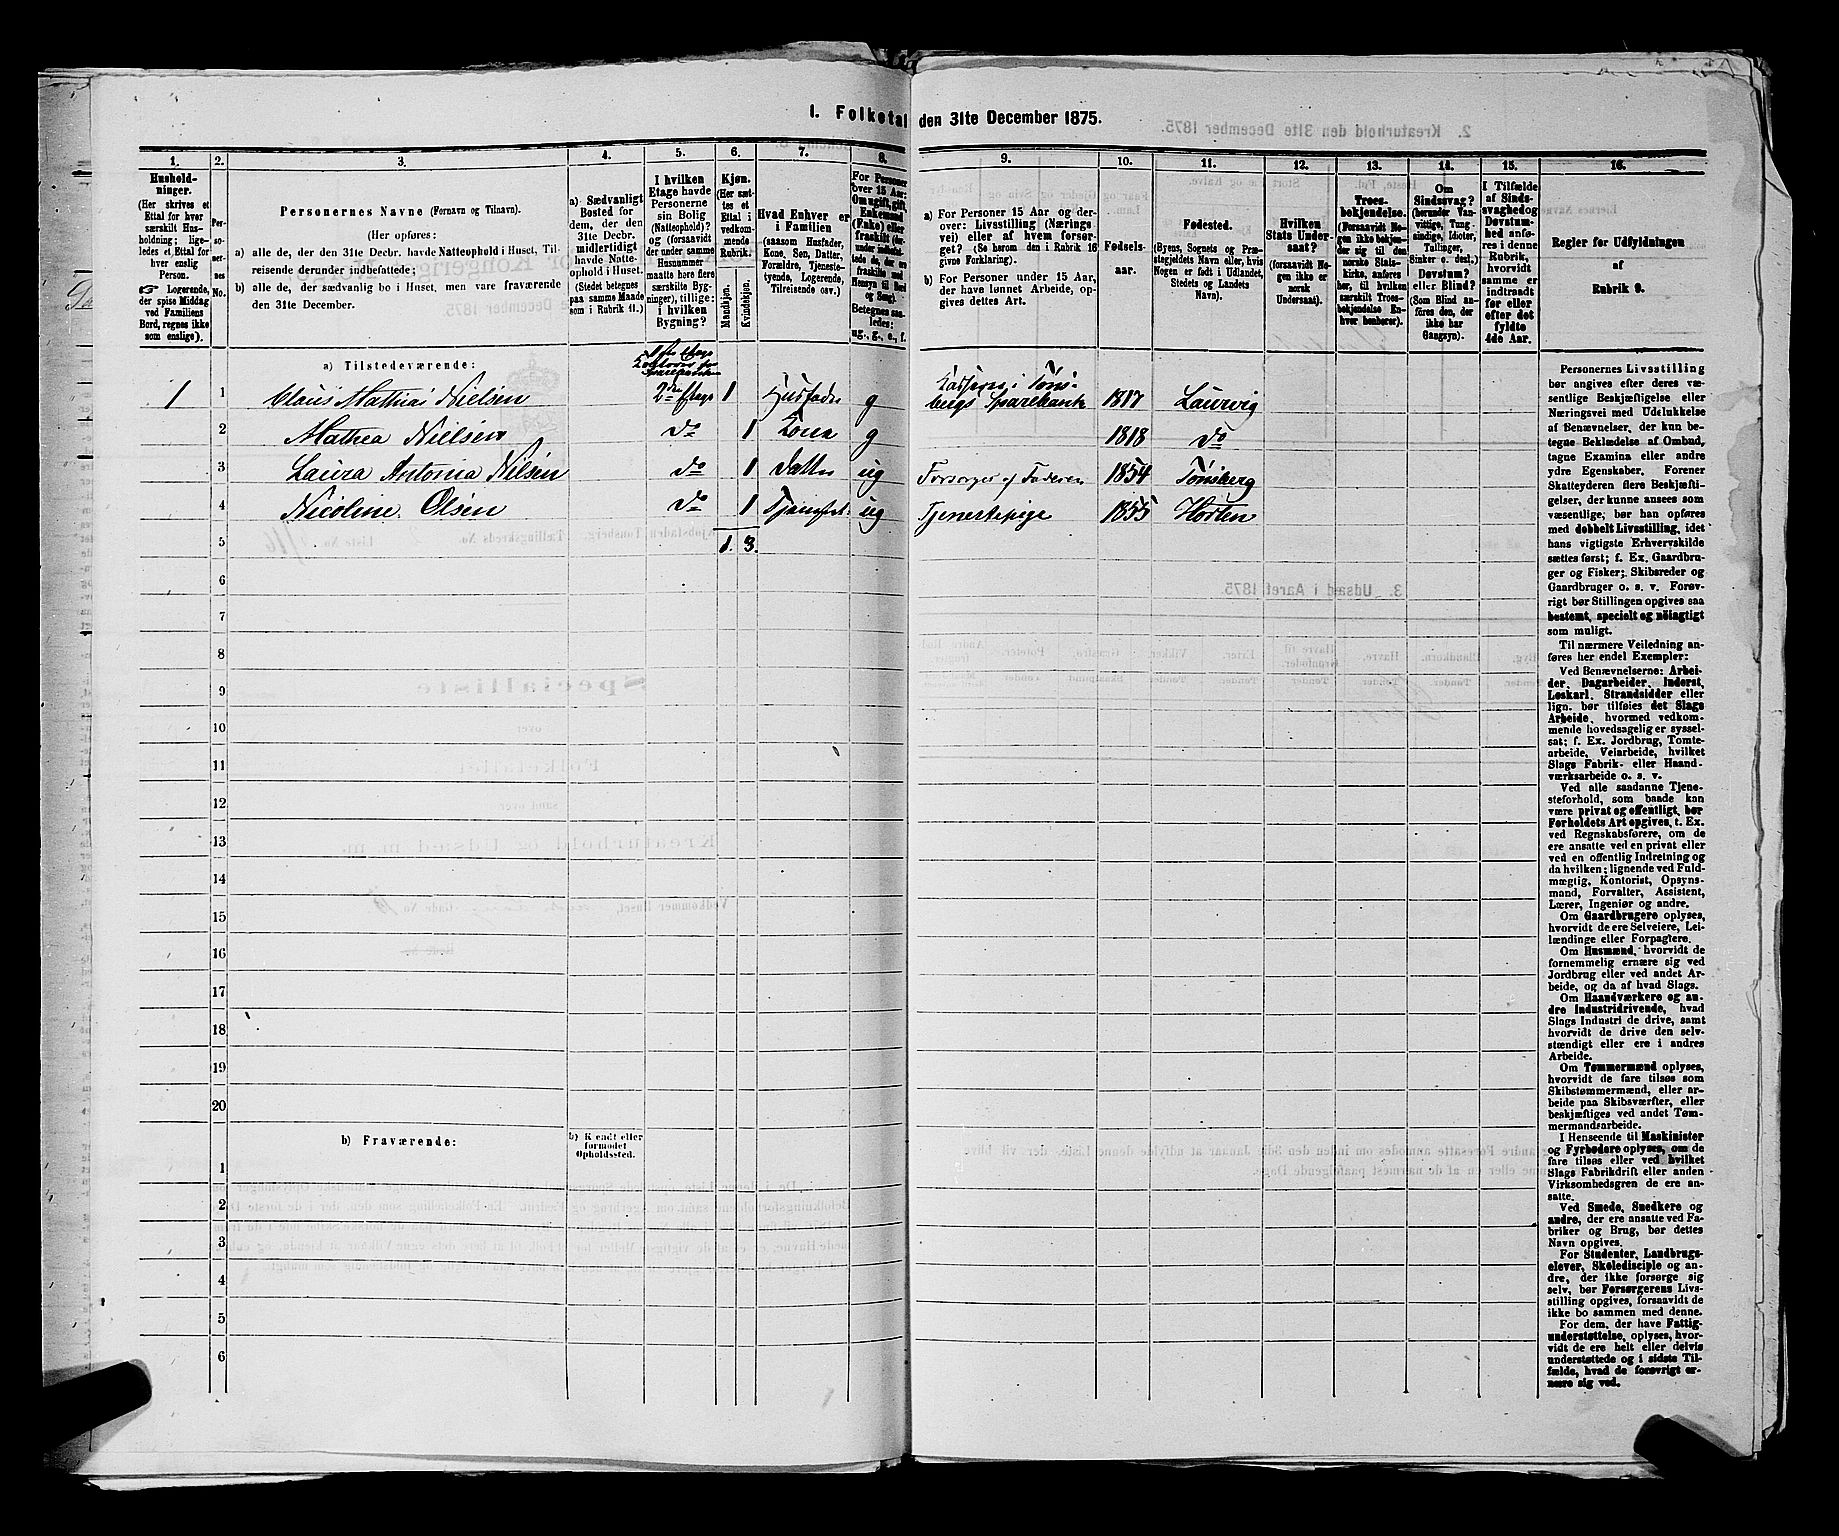 1. Folketal den 31te December 1875.
1. 2. 3. 4. 5. 6. 7. 8. 9. 10. 11. 12. 13. 14. 15. 16.
Hushold-
ninger.
(Her skrives et
Ettal for hver
særskilt Hus-
holdning; lige-
ledes et Ettal for
hver enslig
Person.
☞ Logerende,
der spise Middag
ved Familiens
Bord, regnes ikke
som enslige).
Per-
so-
ner-
nes
No.
Personernes Navne (Fornavn og Tilnavn).
(Her opføres:
a) alle de, der den 31te Decbr. havde Natteophold i Huset, Til-
reisende derunder indbefattede;
b) alle de, der sædvanlig bo i Huset, men vare fraværende
den 31te December.
a) Sædvanligt
Bosted for
dem, der den
31te Decbr.
midlertidigt
havde Natte-
ophold i Huset.
(Stedet betegnes
paa samme Maade
som i Rubrik 11.)
I hvilken
Etage havde
Personerne
sin Bolig
(Natteophold)?
og (forsaavidt
der under samme
Husnummer
maatte høre flere
særskilte Byg-
ninger), tillige:
i hvilken
Bygning?
Kjøn.
(Her sæt-
tes et
Ettal i
vedkom-
mende
Rubrik.
Mandskjøn.
Kvindekjøn.
Hvad Enhver er
i Familien
(saasom Husfader,
Kone, Søn, Datter,
Forældre, Tjeneste-
tyende, Logerende,
Tilreisende osv.)
For Personer
over 15 Aar:
Om ugift, gift,
Enkemand
(Enke) eller
fraskilt (der-
under indbefat-
tede de, der ere
fraskilte med
Hensyn til Bord
og Seng).
Betegnes saa-
ledes:
ug., g., e., f.
a) For Personer 15 Aar og der-
over: Livsstilling (Nærings-
vei) eller af hvem forsør-
get? (Se herom den i Rubrik 16
givne Forklaring).
b) For Personer under 15 Aar,
der have lønnet Arbeide, op-
gives dettes Art.
Fødsels-
aar.
Fødested.
(Byens, Sognets og Præ-
stegjeldets Navn eller, hvis
Nogen er født i Udlandet,
Stedets og Landets
Navn).
Hvilken
Stats Under-
saat?
(forsaavidt No-
gen ikke er
norsk
Undersaat).
Troes-
bekjendelse.
(Forsaavidt No-
gen ikke bekjen-
der sig til den
norske Stats-
kirke, anføres
her, til hvilken
særskilt Troes-
bekjendelse En-
hver henhører).
Om
Sindssvag?
(herunder Van-
vittige, Tung-
sindige, Idioter,
Tullinger,
Sinker o. desl.)
Døvstum?
eller Blind?
(Som Blind an-
føres den, der
ikke har
Gangsyn).
I Tilfælde
af Sinds-
svaghed og
Døvstum-
hed anfø-
res i denne
Rubrik,
hvorvidt
samme er
indtraadt
før eller
efter det
fyldte
4de Aar.
Regler for Udfyldningen
af
Rubrik 9.
a) Tilstedeværende:
1 1 Claus Mathias Nielsen 2den Etage 1 Husfader g Kasserer i Tøns-
bergs Sparebank 1817 Laurvig
2 Mathea Nielsen do 1 Kone g 1818 do
3 Laura Antonia Nilsen do 1 Datter ug Forsørges af Faderen 1854 Tønsberg
4 Nicoline Olsen do 1 ug Tjenestepige 1855 Horten
5 1. 3.
6
7
8
9
10
11
12
13
14
15
16
17
18
19
20
b) Fraværende:
b) Kjendt eller
formodet
Opholdssted.
1
2
3
4
5
6
Personernes Livsstilling
bør angives efter deres væ-
sentlige Beskjæftigelse eller
Næringsvei med Udelukkelse
af Benævnelser, der kun be-
tegne Beklædelse af Ombud,
tagne Examina eller andre
ydre Egenskaber. Forener
Skatteyderen flere Beskjæfti-
gelser, der kunne ansees som
væsentlige, bør han opgives
med dobbelt Livsstilling, idet
hans vigtigste Erhvervskilde
sættes først; f. Ex. Gaardbru-
ger og Fisker; Skibsreder og
Gaardbruger o. s. v. Forøv-
rigt bør Stillingen opgives saa
bestemt, specielt og nøiagtigt
som muligt.
Til nærmere Veiledning an-
føres her endel Exempler:
Ved Benævnelserne: Arbei-
der, Dagarbeider, Inderst,
Løskarl, Strandsidder eller
lign. bør tilføies det Slags
Arbeide, hvormed vedkom-
mende hovedsagelig er syssel-
sat; f. Ex. Jordbrug, Tomte-
arbeide, Veiarbeide, hvilket
Slags Fabrik- eller Haand-
værksarbeide o. s. v.
Ved alle saadanne Tjene-
steforhold, som baade kan
være privat og offentligt, bør
Forholdets Art opgives, t. Ex.
ved Regnskabsførere, om de
ere ansatte ved en privat eller
ved en offentlig Indretning og
da hvilken; lignende ved Fuld-
mægtig, Kontorist, Opsyns-
mand, Forvalter, Assistent,
Lærer, Ingeniør og andre.
Om Gaardbrugere oplyses,
hvorvidt de ere Selveiere, Lei-
lændinge eller Forpagtere.
Om Husmænd, hvorvidt de
fornemmelig ernære sig ved
Jordbrug eller ved andet Ar-
beide, og da af hvad Slags.
Om Haandværkere og an-
dre Industridrivende, hvad
Slags Industri de drive, samt
hvorvidt de drive den selv-
stændigt eller ere i andres
Arbeide.
Om Tømmermænd oplyses,
hvorvidt de fare tilsøs som
Skibstømmermænd, eller ar-
beide paa Skibsværfter, eller
beskjæftiges ved andet Tøm-
mermandsarbeide.
I Henseende til Maskinister
og Fyrbødere oplyses, om de
fare tilsøs eller ved hvilket
Slags Fabrikdrift eller anden
Virksomhedsgren de ere an-
satte.
Ved Smede, Snedkere og
andre, der ere ansatte ved Fa-
briker og Brug, bør dettes
Navn opgives.
For Studenter, Landbrugs-
elever, Skoledisciple og an-
dre, der ikke forsørge sig
selv, bør Forsørgerens Livs-
stilling opgives, forsaavidt de
ikke bo sammen med denne.
For dem, der have Fattig-
understøttelse, oplyses, hvor-
vidt de ere helt eller delvis
understøttede og i sidste Til-
fælde, hvad de forøvrigt er-
nære sig ved.